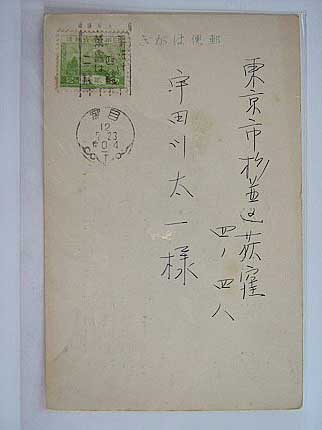 きがは便郵
目黒
12
7.23
東京市杉並区荻窪
四ノ四八
宇田川太一様